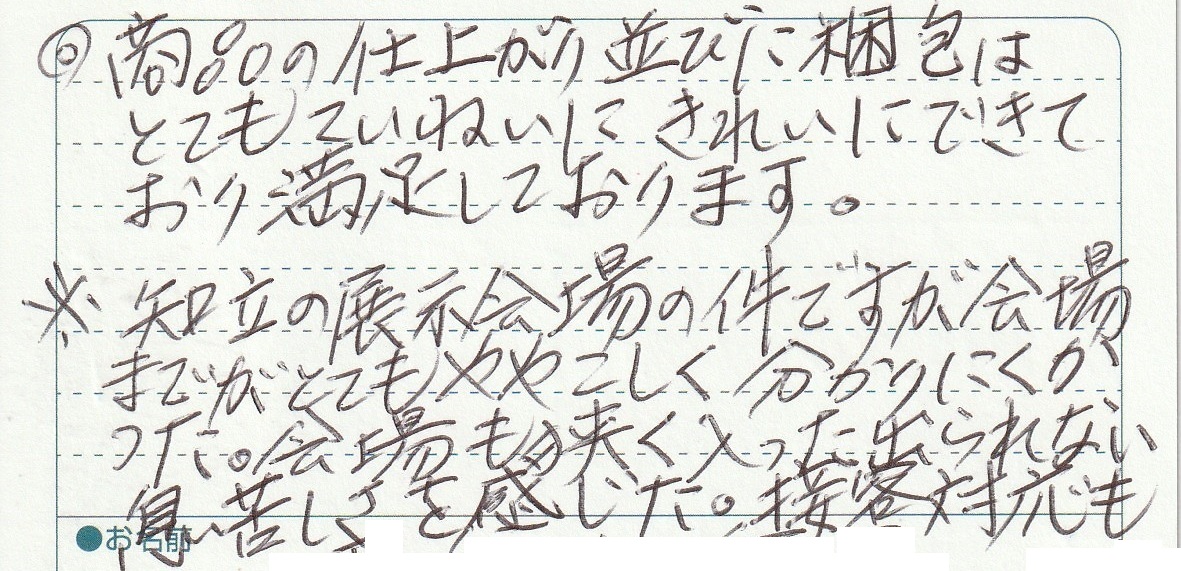 ◎商品の仕上がり並びに梱包は
とてもていねいにきれいにできて
おり満足しております。
※知立の展示会場の件ですが会場
までがとてもややこしく分かりにくか
った。会場も狭く入った出られない
息苦しさを感じた。接客対応も
●お名前